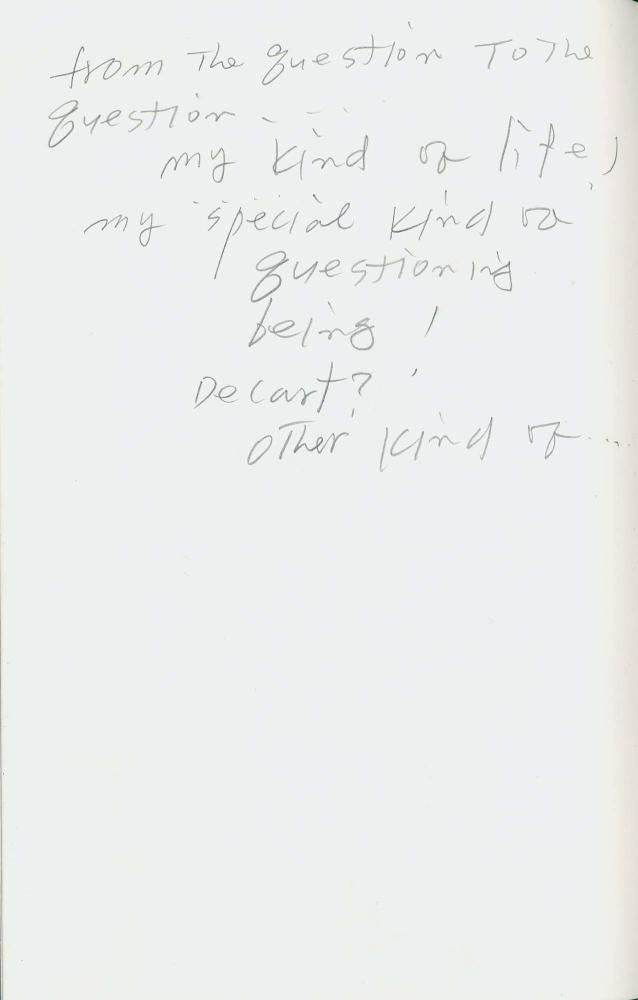 from The question To The
question - - -
my kind of life,
my special kind of
questioning
being !
Decart?
other kind of ...